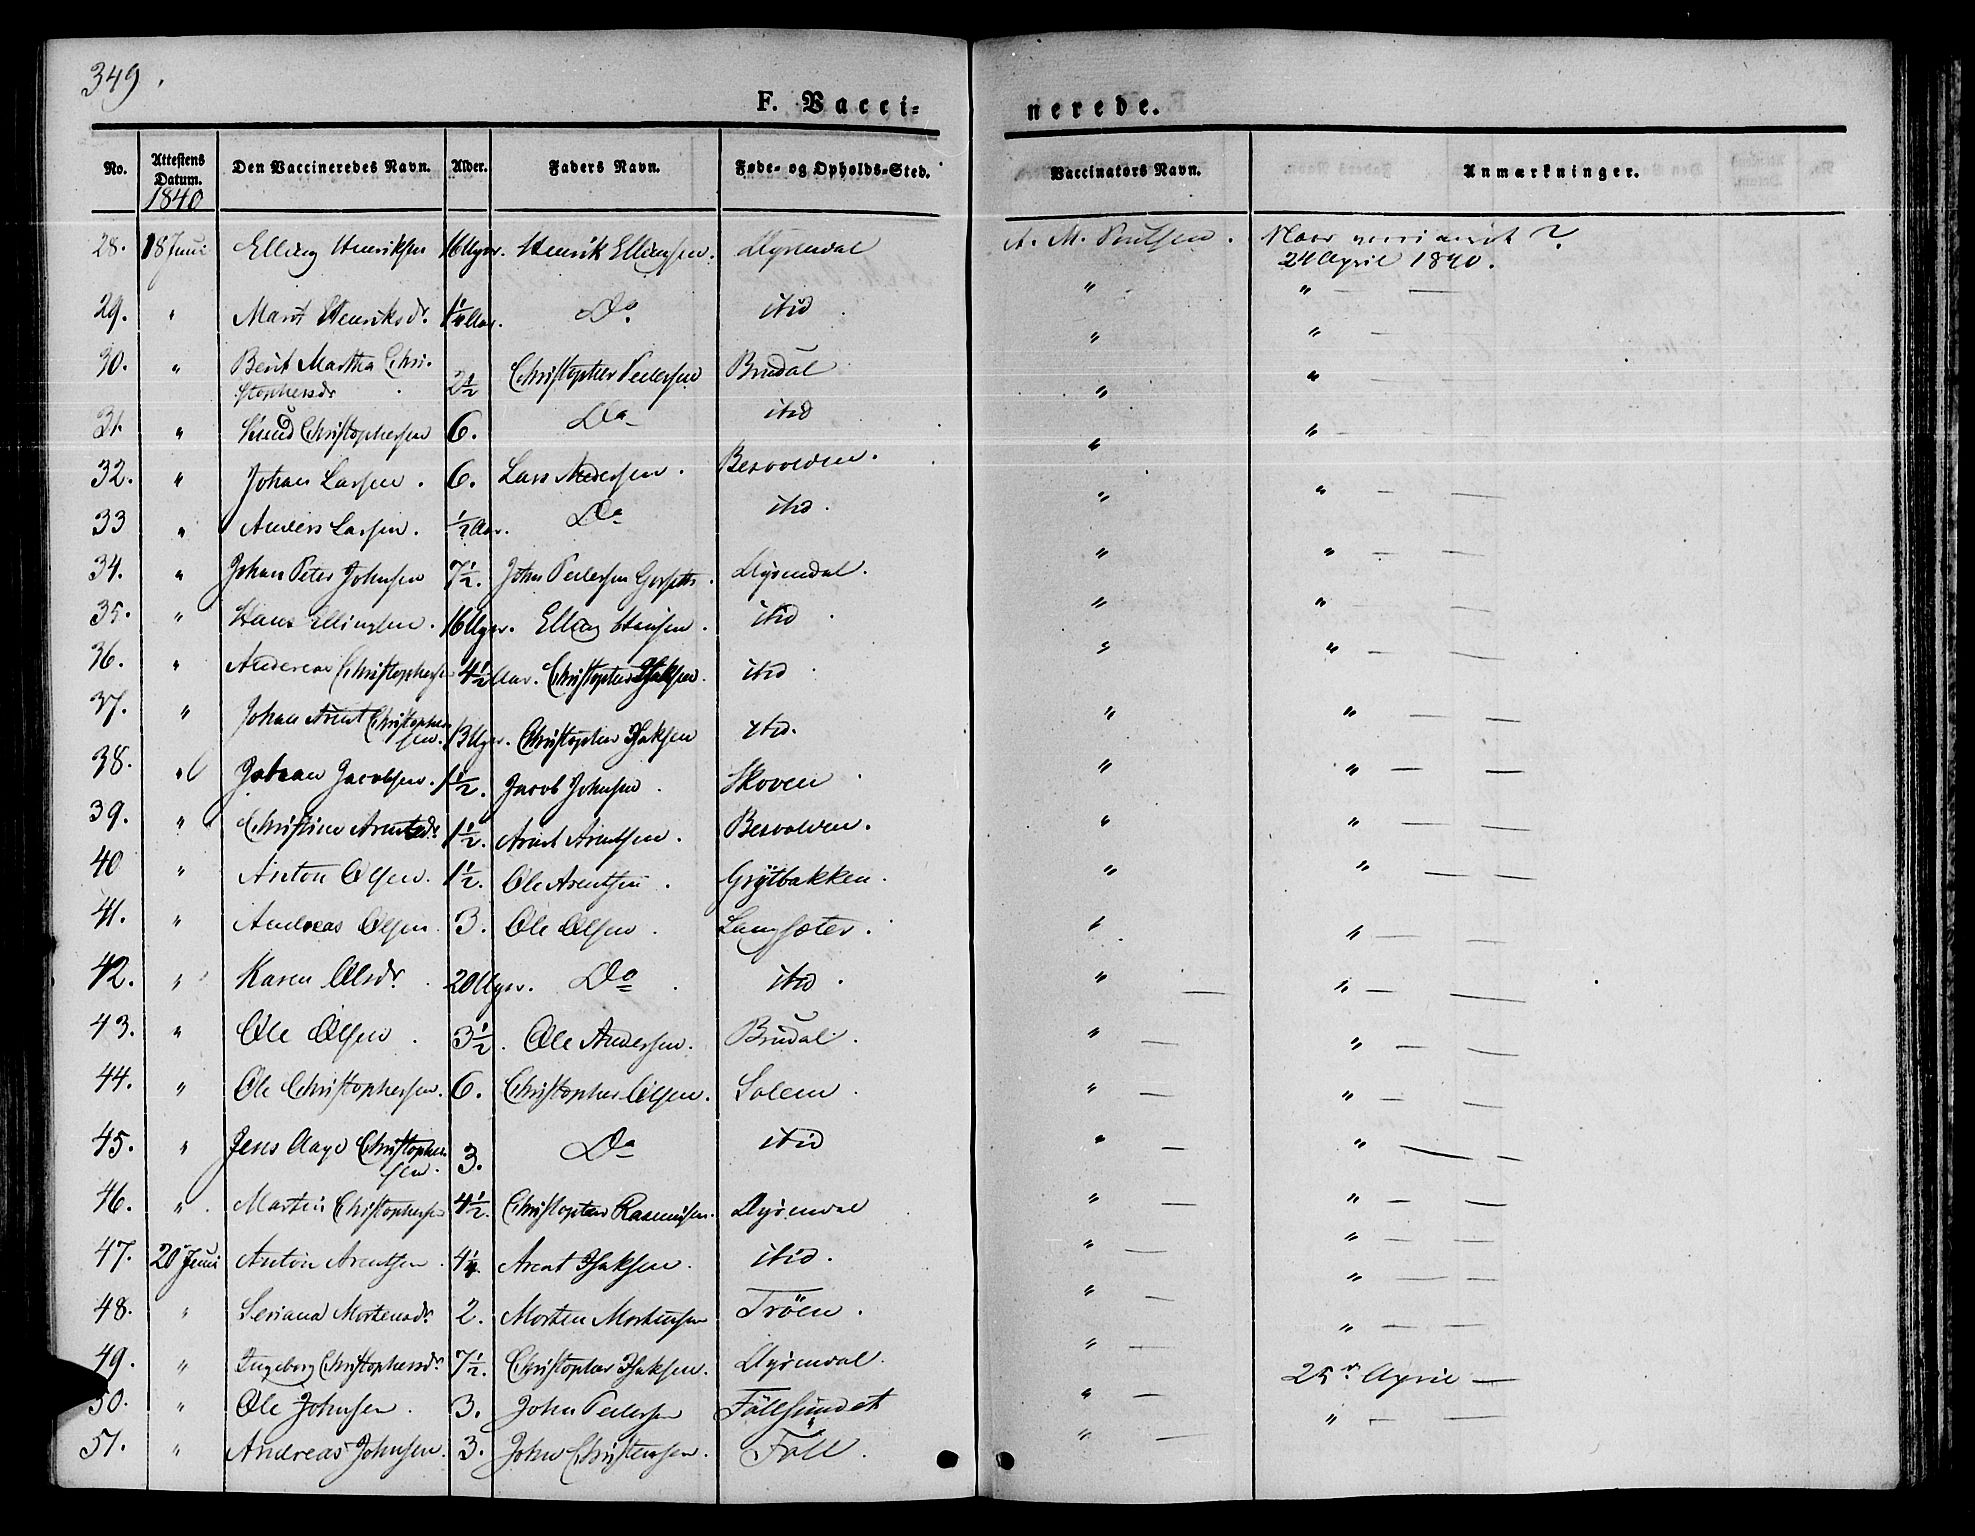 349.
F. Vacci= nerede.
No. Attestens Datum. Den Vaccineredes Navn. Alder. Faders Navn. Føde- og Opholds-Sted. Vaccinators Navn. Anmærkninger.
1840
28. 18 Juni Elling Henriksen 16 Uger. Henrik Ellingsen. Dyrendal A. M. Poulsen. 24 April 1840.
29. " Marit Henriksdr. 1¼ Aar. Do itid " " — —
30. " Berit Martha Chri- stophersdr 2½ Christopher Pedersen Brudal " " — —
31. " Knud Christophersen 6. Do itid " " — —
32. " Johan Larsen. 6. Lars Andersen. Besvolden. " " —
33 " Anders Larsen. ½ Aar. Do itid. " " — —
34. " Johan Peter Johnsen 7½. John Pedersen Dyrendal. " " — —
35. " Hans Ellingsen. 16 Uger. Elling Hansen. itid " " — —
36. " Andereas Christophersen 4½ Aar. Christopher Isaksen. itid " " — —
37. " Johan Arent Christopher sen. 13 Uger. Christopher Isaksen itid. " " — —
38. " Johan Jacobsen. 1½. Jacob Johnsen. Skoven " " — —
39. " Christine Arentsdr. 1½. Arent Arentsen. Besvolden. " " — —
40 " Anton Olsen. 1½. Ole Arentsen. Grytbakken. " " — —
41. " Andreas Olsen. 3. Ole Olsen. Langsæter. " " — —
42. " Karen Olsdr. 20 Uger. Do itid. " — " — —
43. " Ole Olsen. 3½. Ole Andersen. Brudal. " — " — —
44. " Ole Christophersen. 6. Christopher Olsen. Solem. " — " — —
45. " Jens Aage Christopher sen. 3. Do itid " — " — —
46. " Martin Christophersen 4½. Christopher Rasmusen. Dyrendal " — " — —
47. 20 Juni Anton Arentsen. 4¼. Arent Isaksen. itid. " — " — —
48. " Seriana Mortensdr. 2. Morten Mortensen Tröen. " — " — —
49. " Ingeborg Christophersdr. 7½. Christopher Isaksen. Dyrendal. " — " — —
50. " Ole Johnsen. 3. John Pedersen Föllsundet " — 25de April —
51. " Andreas Johnsen. 3. John Christensen. Föll. " — " — —